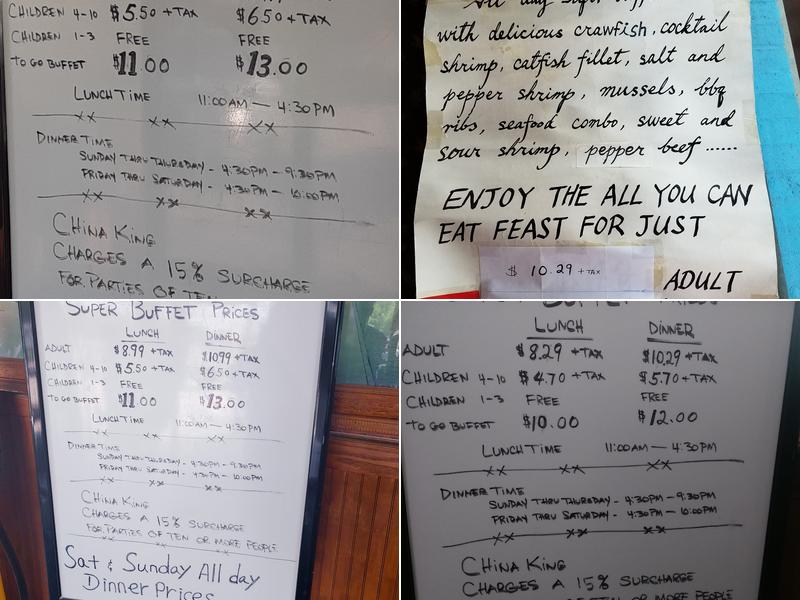 CHILDREN 4-10 $5.50 +TAX $6.50 +TAX
CHILDREN 1-3 FREE FREE
TO GO BUFFET $11.00 $13.00
LUNCH TIME 11:00AM — 4:30PM
DINNER TIME
SUNDAY THRU THURSDAY - 4:30PM - 9:30PM
FRIDAY THRU SATURDAY - 4:30PM - 10:00PM
CHINA KING
CHARGES A 15% SURCHARGE
FOR PARTIES OF TEN
All day
with delicious crawfish, cocktail
shrimp, catfish fillet, salt and
pepper shrimp, mussels, bbq
ribs, seafood combo, sweet and
sour shrimp, pepper beef ......
ENJOY THE ALL YOU CAN
EAT FEAST FOR JUST
$ 10.29 + TAX
ADULT
SUPER BUFFET PRICES
LUNCH DINNER
ADULT $8.99 +TAX $10.99 +TAX
CHILDREN 4-10 $5.50 +TAX $6.50 +TAX
CHILDREN 1-3 FREE FREE
TO GO BUFFET $11.00 $13.00
LUNCH TIME 11:00AM — 4:30PM
DINNER TIME
SUNDAY THRU THURSDAY - 4:30PM - 9:30PM
FRIDAY THRU SATURDAY - 4:30PM - 10:00PM
CHINA KING
CHARGES A 15% SURCHARGE
FOR PARTIES OF TEN OR MORE PEOPLE
Sat & Sunday All day
Dinner Prices
LUNCH DINNER
ADULT $8.29 +TAX $10.29 +TAX
CHILDREN 4-10 $4.70 +TAX $5.70 +TAX
CHILDREN 1-3 FREE FREE
TO GO BUFFET $10.00 $12.00
LUNCH TIME 11:00AM — 4:30PM
DINNER TIME
SUNDAY THRU THURSDAY - 4:30PM - 9:30PM
FRIDAY THRU SATURDAY - 4:30PM - 10:00PM
CHINA KING
CHARGES A 15% SURCHARGE
OF TEN OR MORE PEOPLE